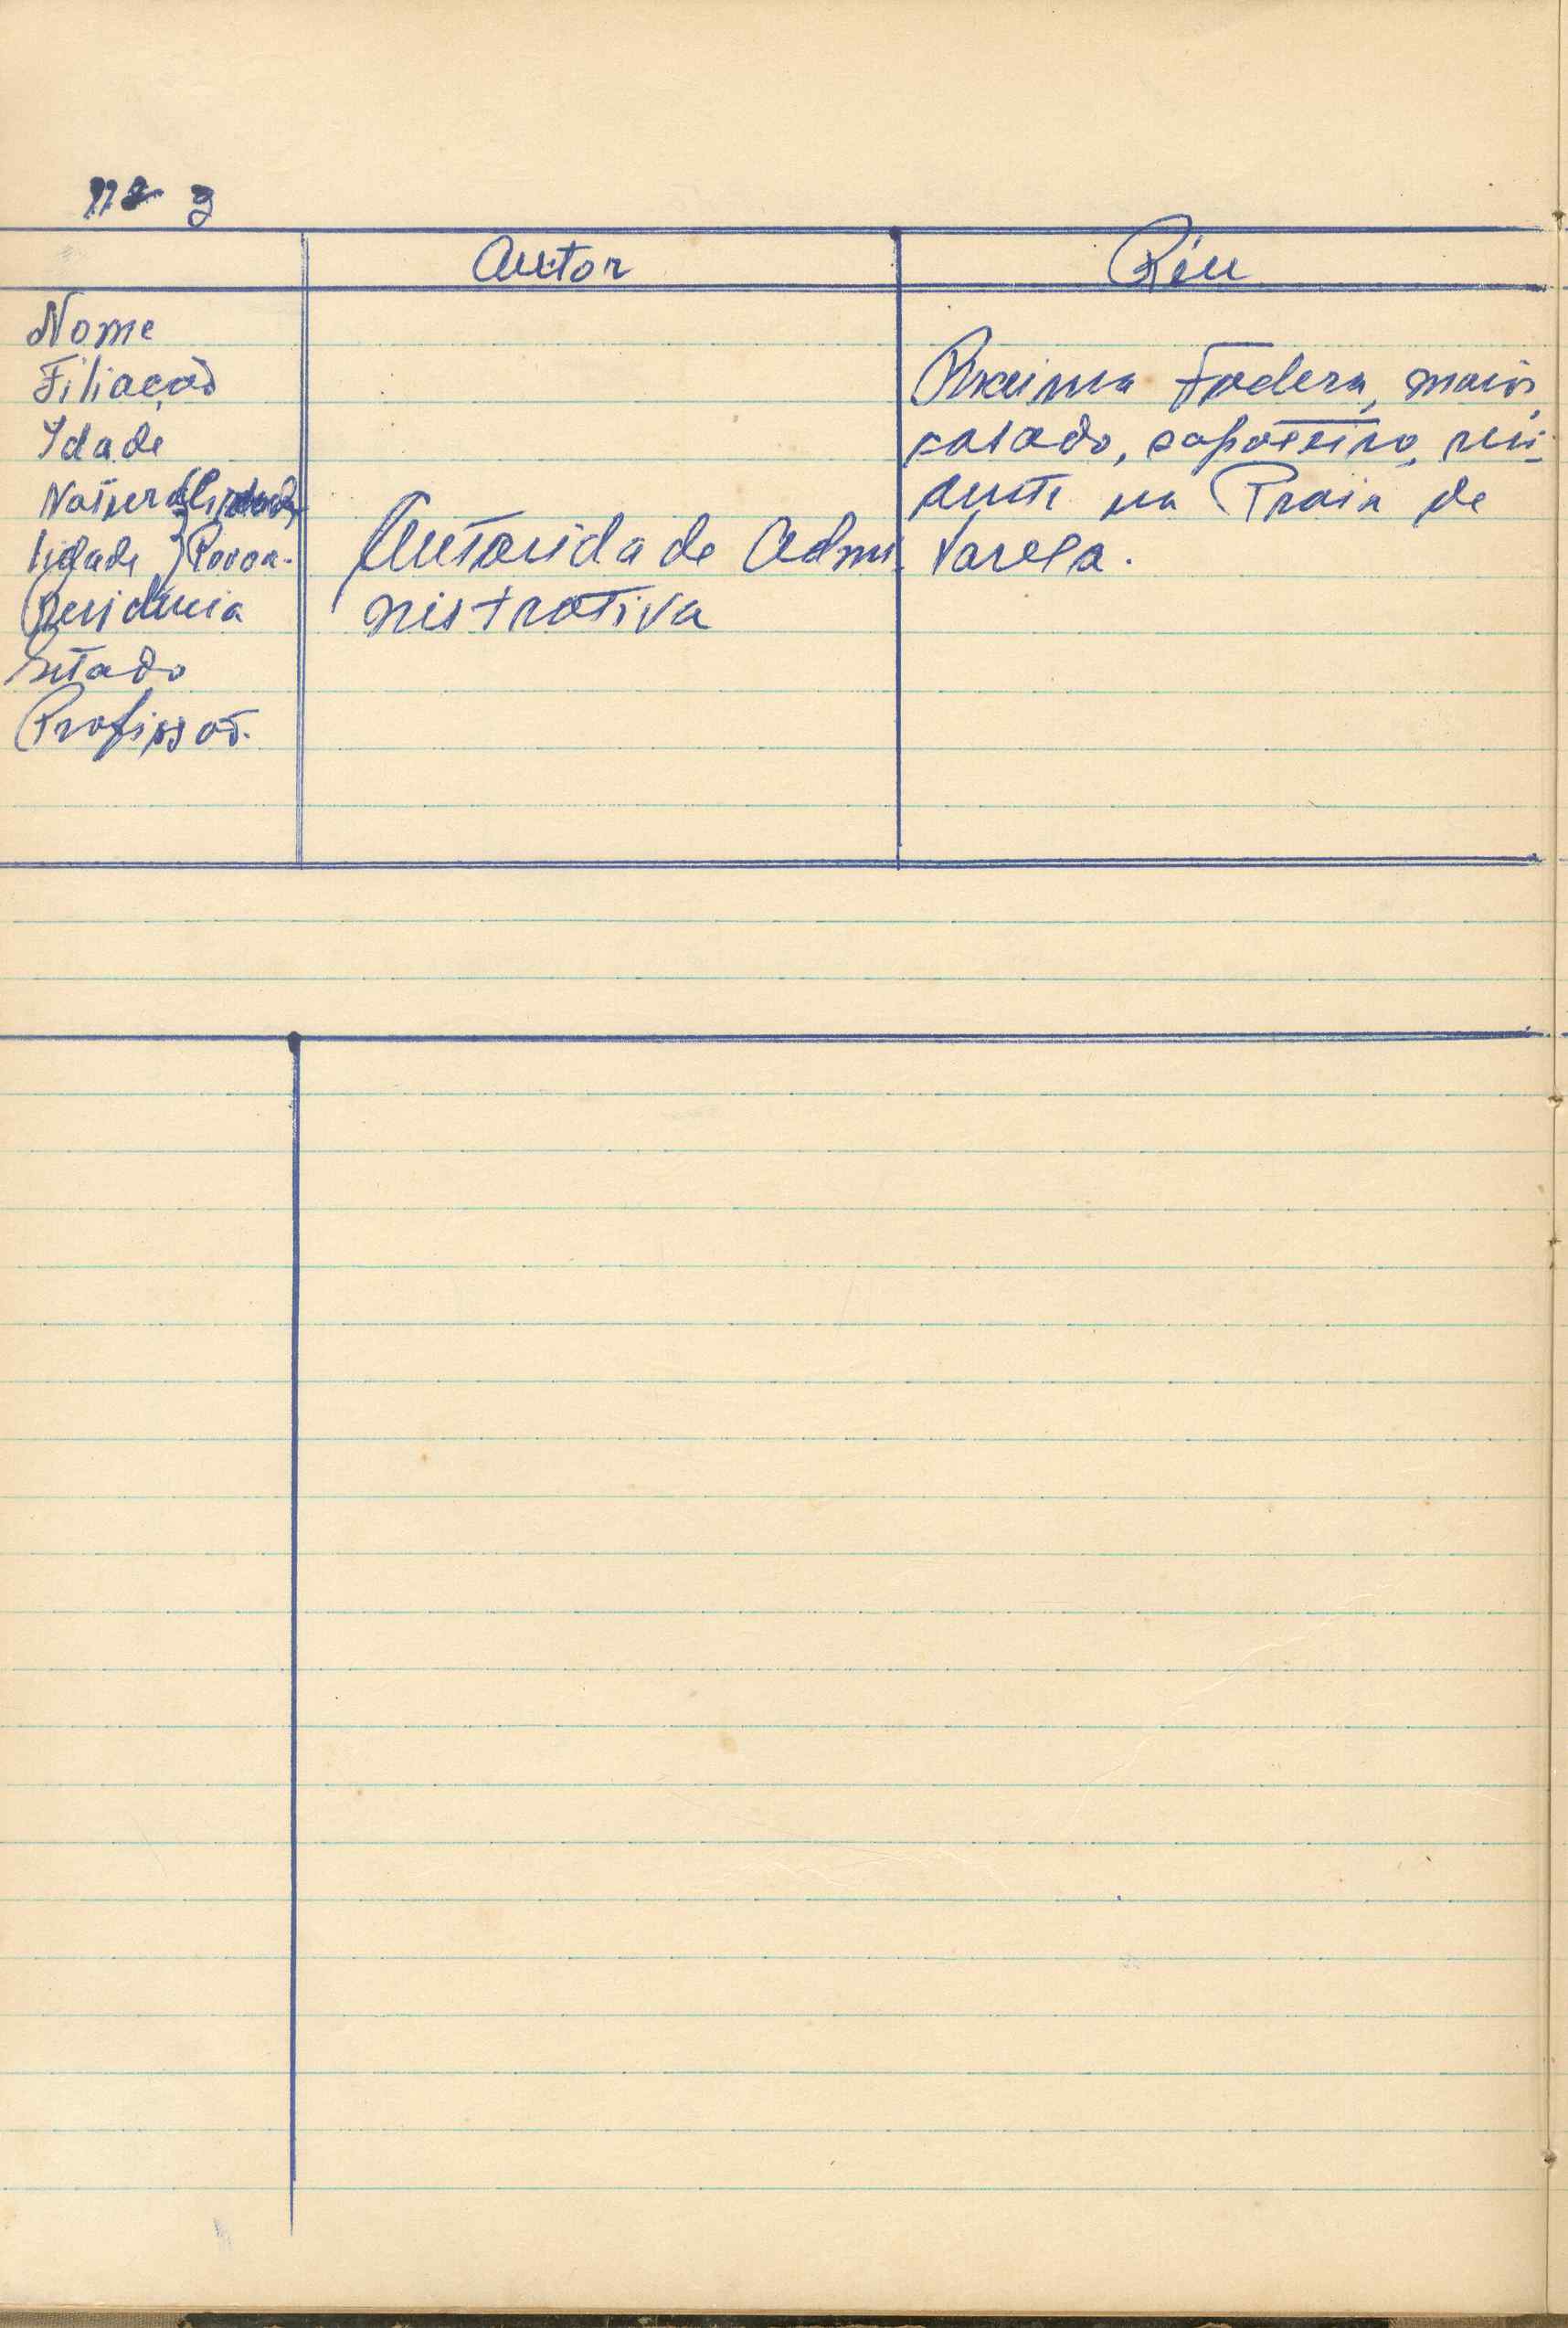 nº 3
Autor
Réu
Nome
Filiação
Idade
Natura
lidade } Povoa-
Residencia
Estado
Profissão.
Autoridade Admi-
nistrativa
Fodera, maior,
casado, sapateiro, resi-
dente na Praia de
Varela.